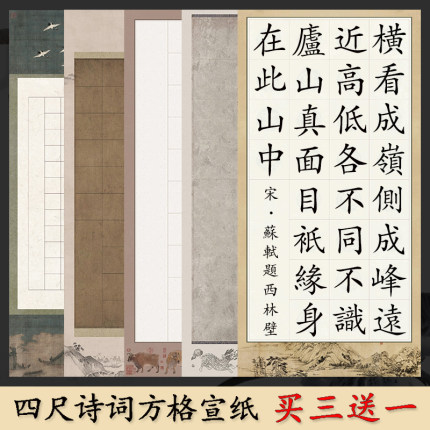 橫看成嶺側成峰遠
近高低各不同不識
廬山真面目衹緣身
在此山中
宋·蘇軾題西林壁
四尺诗词方格宣纸 买三送一